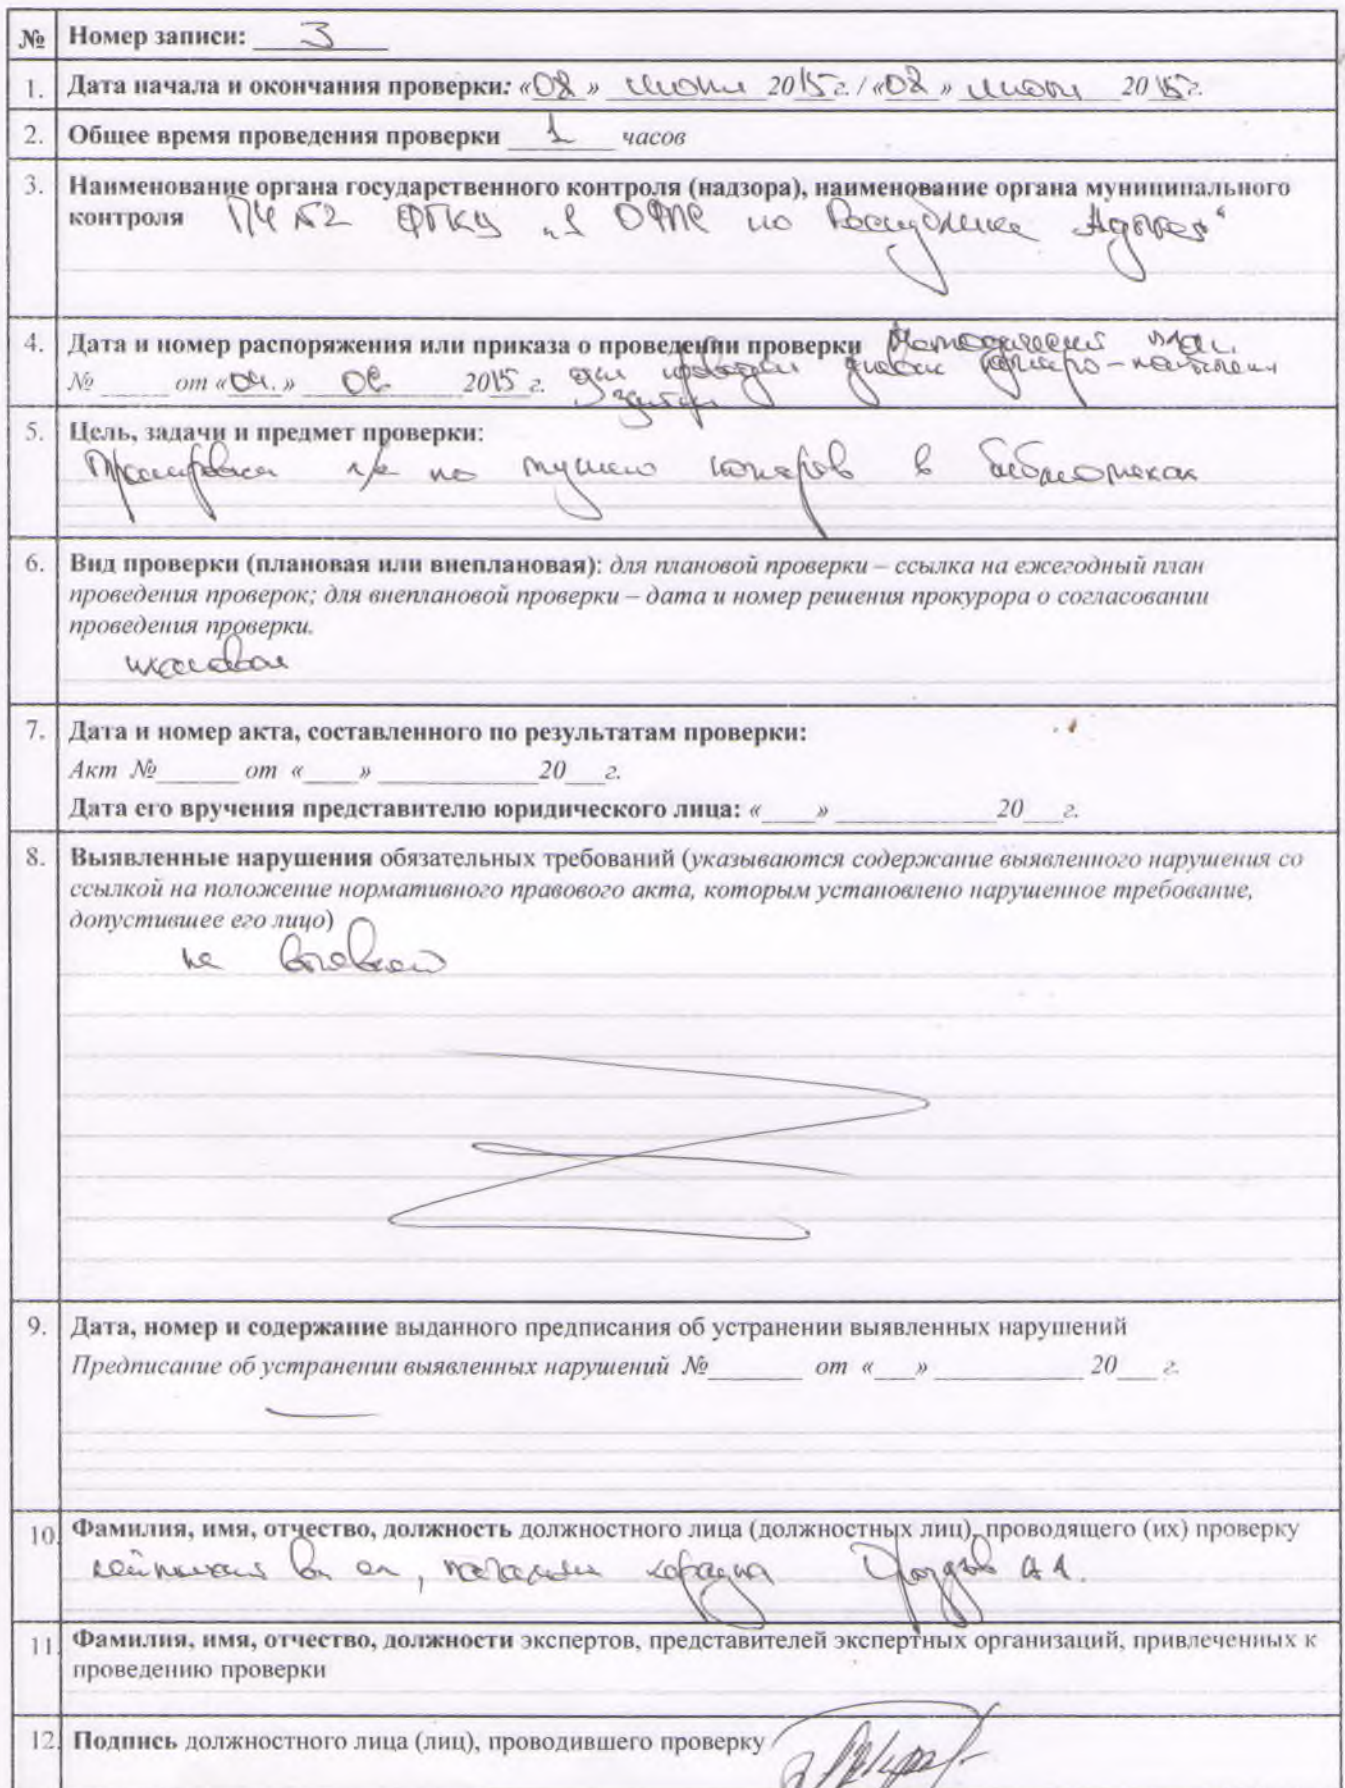 № Номер записи: 3
1. Дата начала и окончания проверки: «08» июня 2015г. / «08» июня 2015г.
2. Общее время проведения проверки 1 часов
3. Наименование органа государственного контроля (надзора), наименование органа муниципального
контроля ПЧ №2 ФГКУ „1 ОФПС по Республике Адыгея“
4. Дата и номер распоряжения или приказа о проведении проверки Методический план
№ ____ от «04.» 06 2015 г. для проведения
5. Цель, задачи и предмет проверки:
Тренировка л/с по тушению пожаров в библиотеках
6. Вид проверки (плановая или внеплановая): для плановой проверки – ссылка на ежегодный план
проведения проверок; для внеплановой проверки – дата и номер решения прокурора о согласовании
проведения проверки.
плановая
7. Дата и номер акта, составленного по результатам проверки:
Акт №______ от «____» ___________20___г.
Дата его вручения представителю юридического лица: «____» ____________20___г.
8. Выявленные нарушения обязательных требований (указываются содержание выявленного нарушения со
ссылкой на положение нормативного правового акта, которым установлено нарушенное требование,
допустившее его лицо)
не выявлено
9. Дата, номер и содержание выданного предписания об устранении выявленных нарушений
Предписание об устранении выявленных нарушений №_______ от «___» ___________ 20___ г.
10. Фамилия, имя, отчество, должность должностного лица (должностных лиц), проводящего (их) проверку
лейтенант вн сл, начальник караула Дроздов А.А.
11. Фамилия, имя, отчество, должности экспертов, представителей экспертных организаций, привлеченных к
проведению проверки
12. Подпись должностного лица (лиц), проводившего проверку